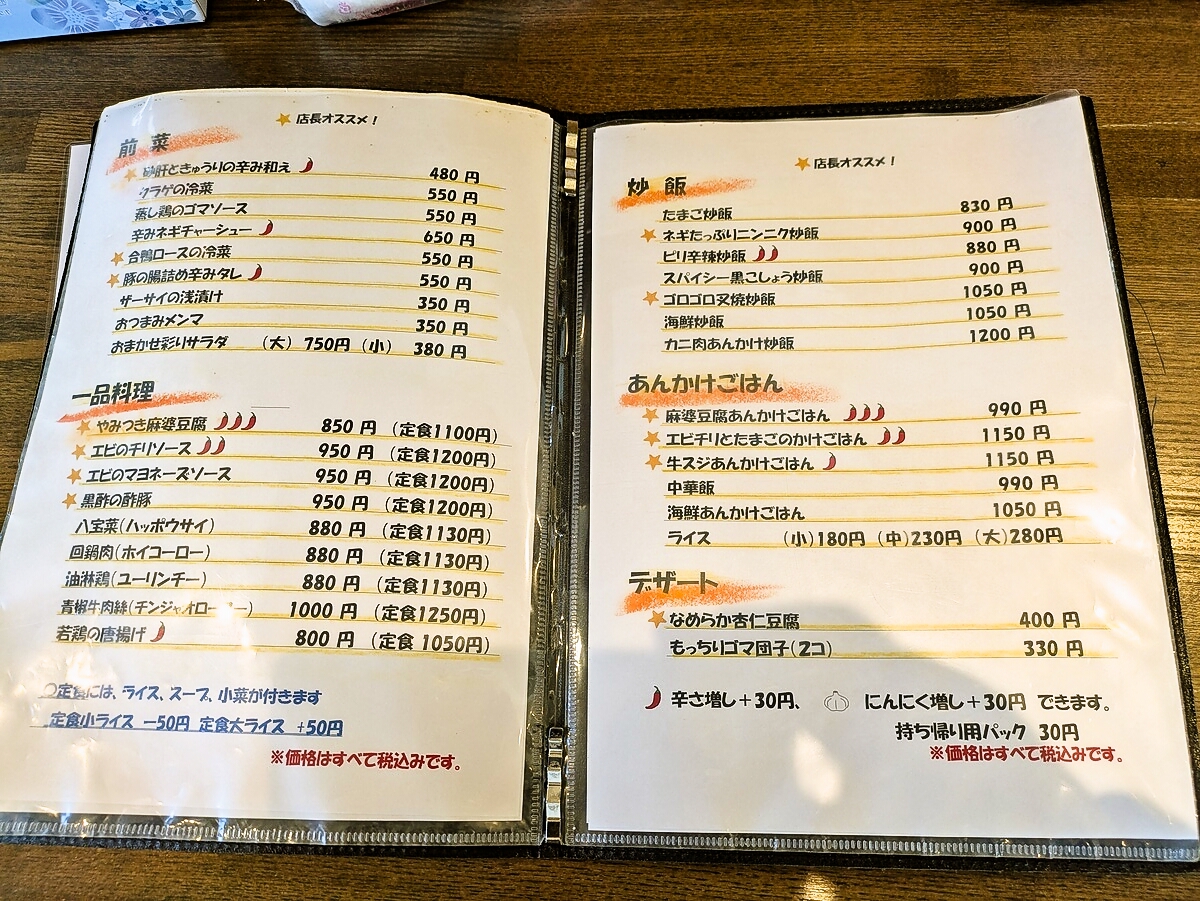 店長オススメ!
前菜
砂肝ときゅうりの辛み和え 480 円
クラゲの冷菜 550 円
蒸し鶏のゴマソース 550 円
辛みネギチャーシュー 650 円
合鴨ロースの冷菜 550 円
豚の腸詰め辛みタレ 550 円
ザーサイの浅漬け 350 円
おつまみメンマ 350 円
おまかせ彩りサラダ (大) 750円 (小) 380 円
一品料理
やみつき麻婆豆腐 850 円 (定食1100円)
エビのチリソース 950 円 (定食1200円)
エビのマヨネーズソース 950 円 (定食1200円)
黒酢の酢豚 950 円 (定食1200円)
八宝菜(ハッポウサイ) 880 円 (定食1130円)
回鍋肉(ホイコーロー) 880 円 (定食1130円)
油淋鶏(ユーリンチー) 880 円 (定食1130円)
青椒牛肉絲 1000 円 (定食1250円)
若鶏の唐揚げ 800 円 (定食 1050円)
〇定食には、ライス、スープ、小菜が付きます
定食小ライス −50円 定食大ライス +50円
※価格はすべて税込みです。
店長オススメ!
炒飯
たまご炒飯 830 円
ネギたっぷりニンニク炒飯 900 円
ピリ辛辣炒飯 880 円
スパイシー黒こしょう炒飯 900 円
ゴロゴロ叉焼炒飯 1050 円
海鮮炒飯 1050 円
カニ肉あんかけ炒飯 1200 円
あんかけごはん
麻婆豆腐あんかけごはん 990 円
エビチリとたまごのかけごはん 1150 円
牛スジあんかけごはん 1150 円
中華飯 990 円
海鮮あんかけごはん 1050 円
ライス (小)180円 (中)230円 (大)280円
デザート
なめらか杏仁豆腐 400 円
もっちりゴマ団子(2コ) 330 円
辛さ増し+30円、 にんにく増し+30円 できます。
持ち帰り用パック 30円
※価格はすべて税込みです。